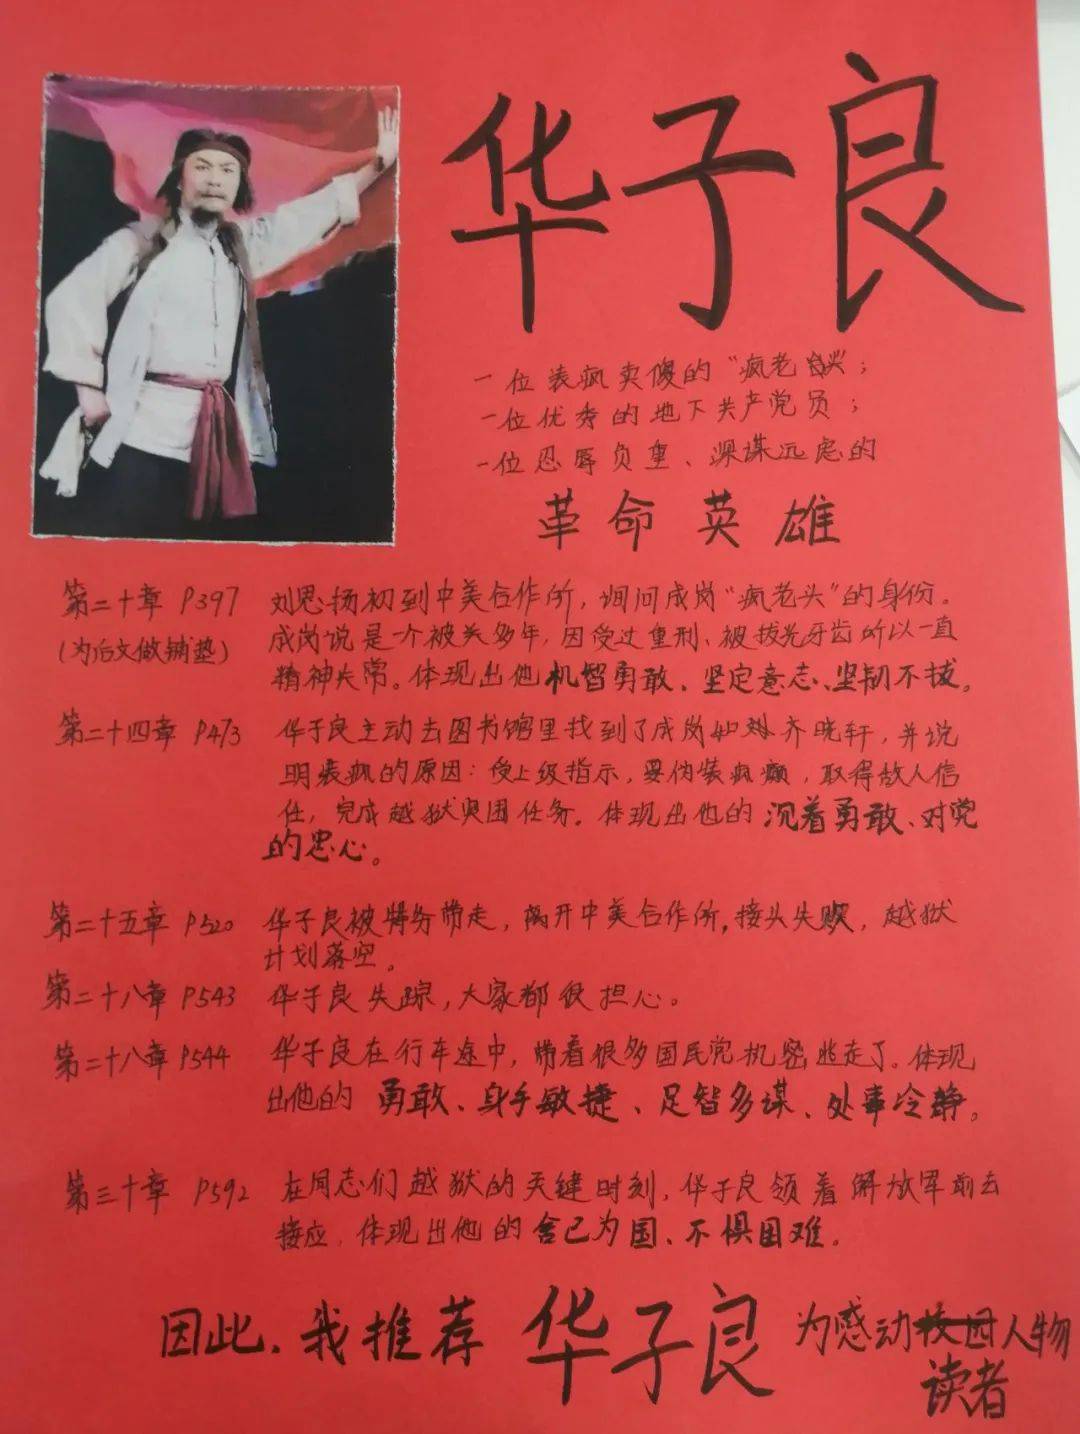 华子良
一位装疯卖傻的“疯老头”；
一位优秀的地下共产党员；
一位忍辱负重、深谋远虑的
革命英雄
第二十章 P397 刘思扬初到中美合作所，询问成岗“疯老头”的身份。
(为后文做铺垫) 成岗说是一个被关多年，因受过重刑、被拔光牙齿所以一直
精神失常。体现出他机智勇敢、坚定意志、坚韧不拔。
第二十四章 P473 华子良主动去图书馆里找到了成岗和齐晓轩，并说
明装疯的原因：受上级指示，要伪装疯癫，取得敌人信
任，完成越狱突围任务。体现出他的沉着勇敢、对党
的忠心。
第二十五章 P520 华子良被特务带走，离开中美合作所，接头失败，越狱
计划落空。
第二十八章 P543 华子良失踪，大家都很担心。
第二十八章 P544 华子良在行车途中，带着很多国民党机密逃走了。体现
出他的 勇敢、身手敏捷、足智多谋、处事冷静。
第三十章 P592 在同志们越狱的关键时刻，华子良领着解放军前去
接应，体现出他的舍己为国、不惧困难。
因此，我推荐 华子良 为感动校园人物
读者